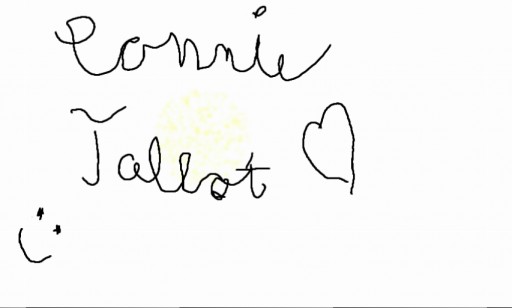 Connie
Talbot